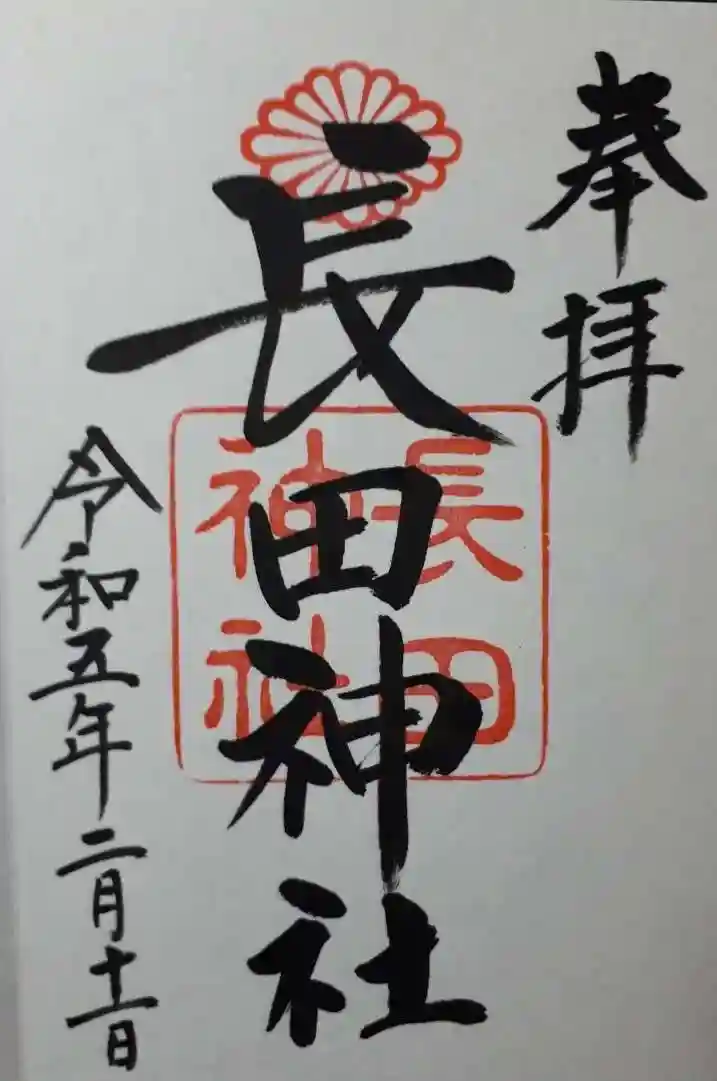 奉拝
長田神社
長田神社
令和五年二月十一日